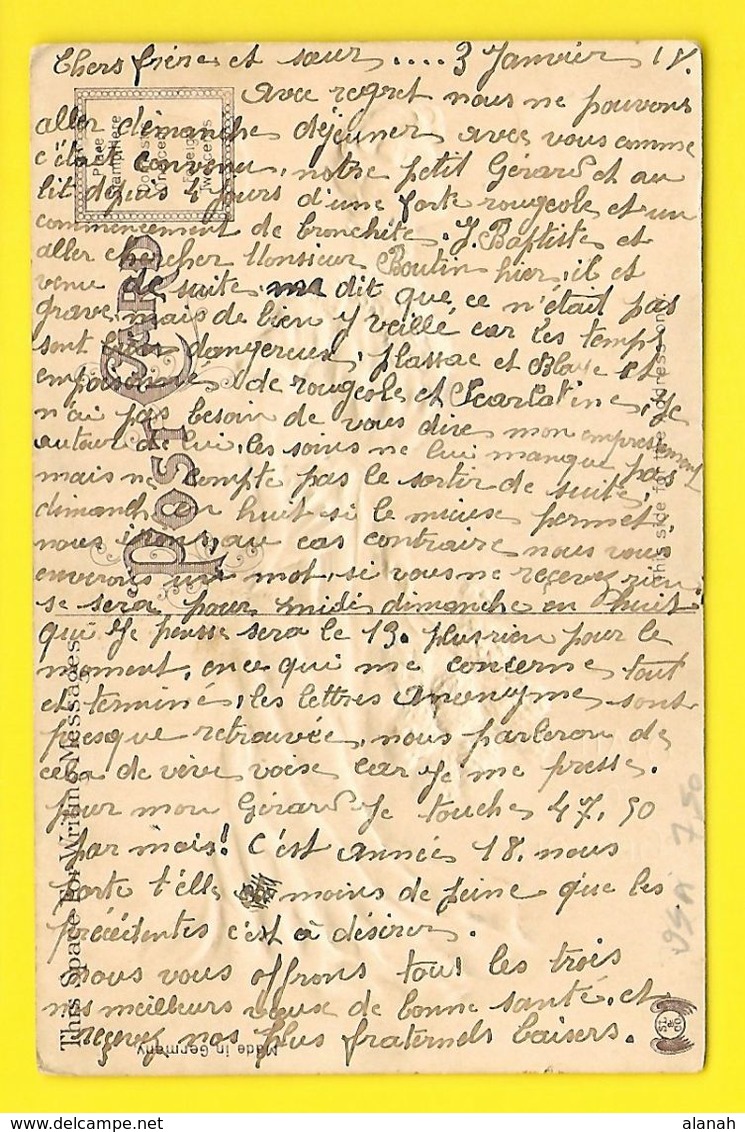 Chers frère et sœur .... 3 Janvier 18.
Avec regret nous ne pouvons
aller dimanche déjeuner avec vous comme
c'était convenu, notre petit Gérard et au
lit depuis 4 jours d'une forte rougeole et un
commencement de bronchite. J. Baptiste et
aller chercher Monsieur Boutin hier, il et
venu de suite, dit que ce n'était pas
grave, mais de bien y veillé car les temps
sont bien dangereux, Plassac et Blaye et
empoisonné de rougeole et scarlatine, Je
n'ai pas besoin de vous dire mon empressement
autour de lui, les soins ne lui manque pas
mais ne compte pas le sortir de suite,
dimanch en huit si le mieux permet,
nous irons, au cas contraire nous vous
enverons un mot, si vous ne recevez rien
se sera pour midi dimanche en huit
que Je pense sera le 13. plus rien pour le
moment, en ce qui me concerne tout
et terminé, les lettres anonymes sont
presque retrouvée, nous parleron de
cela de vive voise car Je me presse.
pour mon Gérard Je touche 47,50
par mais! C'est année 18. nous
porte t'elle moins de peine que les
précédentes c'est à désirer.
nous vous offrons tous les trois
nos meilleurs vœux de bonne santé, et
recevez nos plus fraternels baisers.
Place
Stamp Here
Domestic
One Cent
Foreign
Two Cents
POST CARD
This side for the Address only.
This Space For Writing Messages
Made in Germany
SL & CO
7,50
alanah